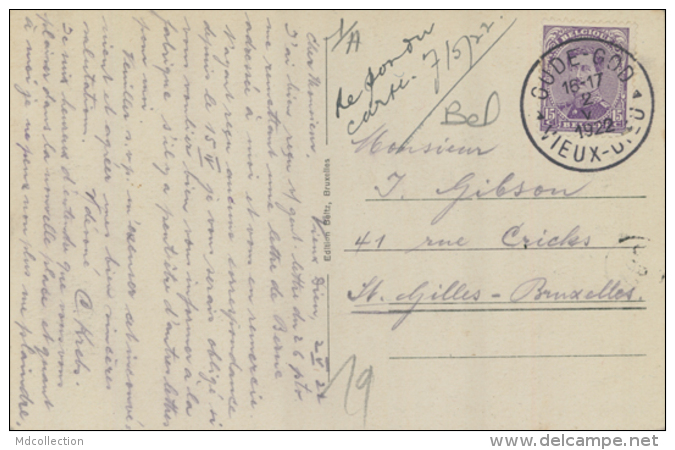 Vieux Dieu, 2/V 22
Cher Monsieur,
J'ai bien reçu v/ lettre du 26 
me remettant une lettre de Berne
adressée à moi et vous en remercie
N'ayant reçu aucune correspondance
depuis le 15/IV je vous serais obligé si
vous vouliez bien vous informer à la
fabrique s'il y a peut-être d'autres lettres
pour moi.
Veuillez s.v.p. m'excuser
et agréer mes bien sincères
salutations.
C. Krebs.
Je suis heureux d'entendre que vous vous
plaisez dans la nouvelle place et quant
à moi je ne peux non plus me plaindre.
Edition Baltz, Bruxelles
1/A
Rep. 
carte. 7/5/22
Bel
BELGIQUE
15 15
BELGIE
OUDE-GOD
16-17
2
V
1922
VIEUX-DIEU
Monsieur
J. Gibson
41 rue Cricks
St. Gilles - Bruxelles.
19
Mdcollection
www.delcampe.net